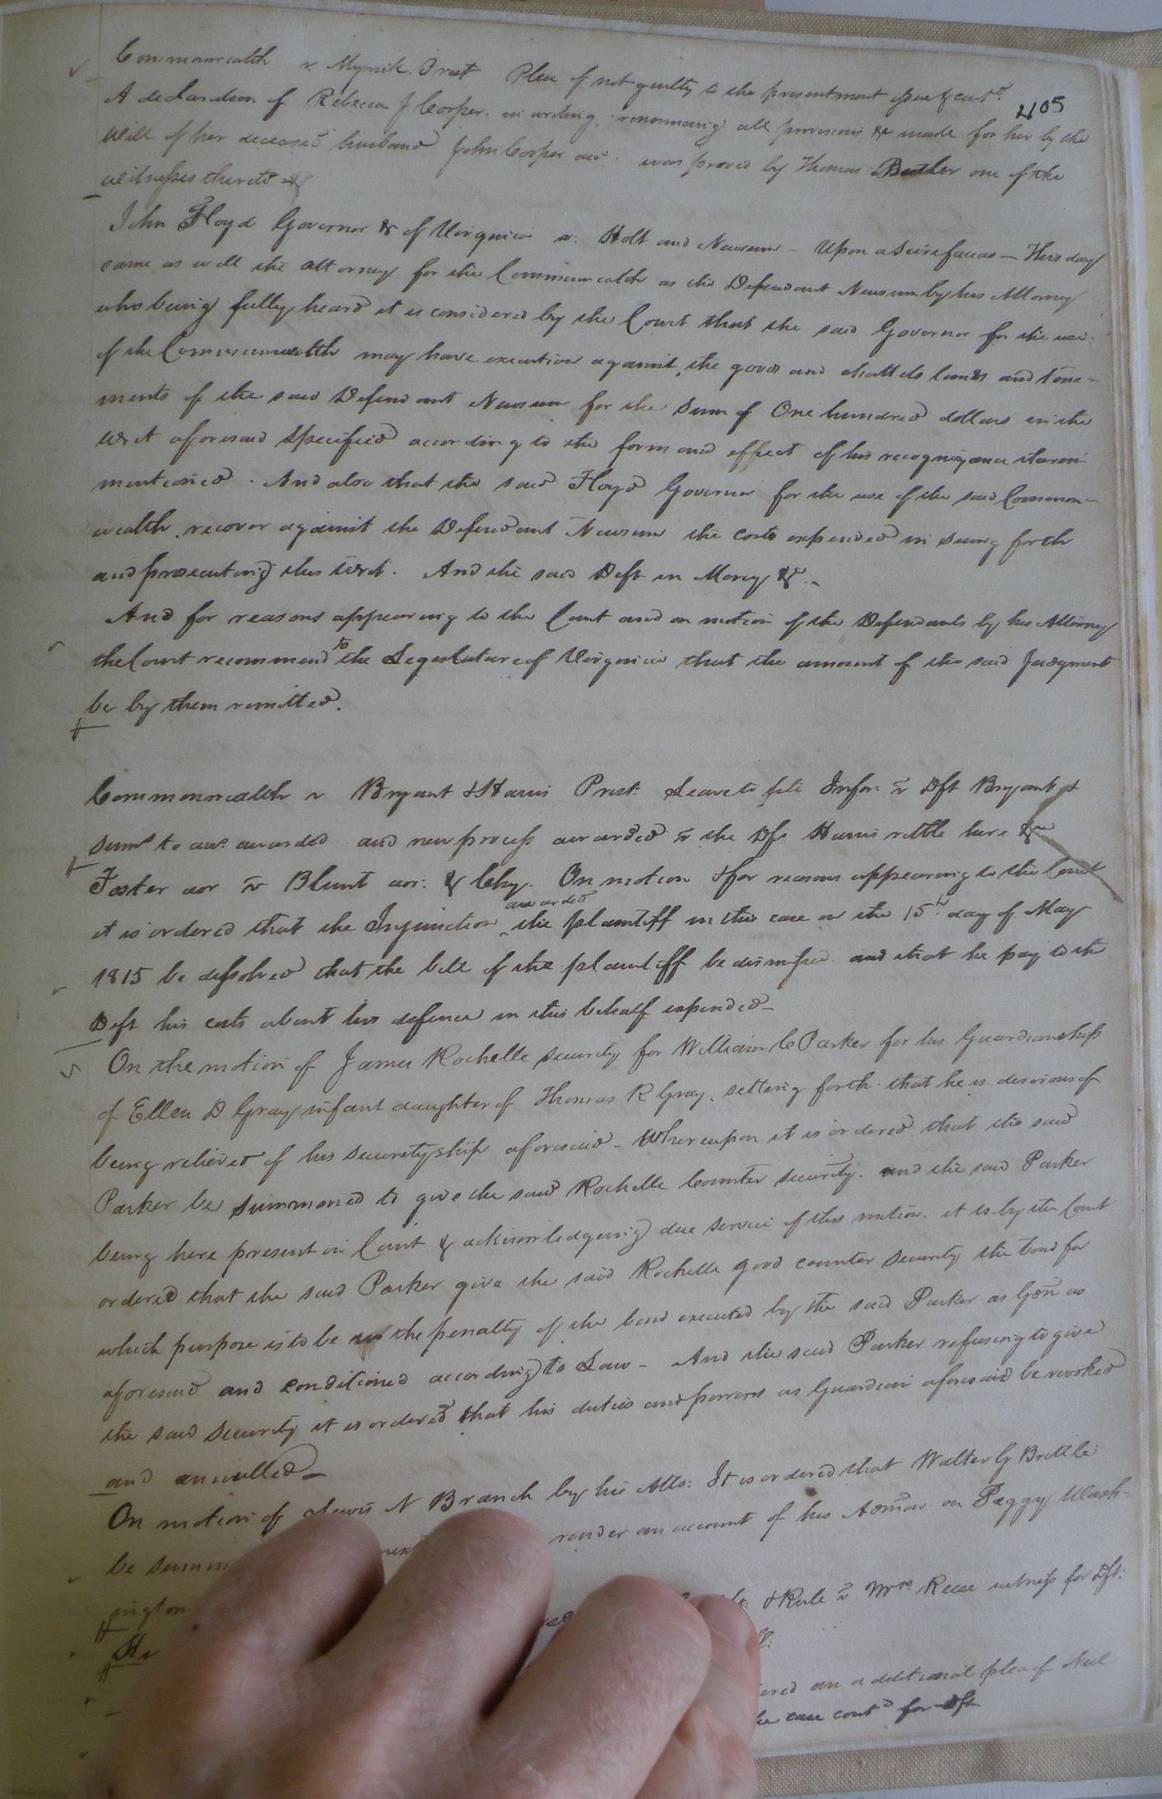 405
Commonwealth v. Myrick. Prest Plea of not guilty to the presentment issue & contd
A declaration of Rebecca J Corper in writing renouncing all provisions &c made for her by the
will of her deceased husband John Corper decd. was proved by Thomas Butler one of the
witnesses thereto &c
John Floyd Governor &c of Virginia v. Holt and Newsum – Upon a Scirefacias – This day
came as well the attorney for the Commonwealth as the Defendant Newsum by his Attorney
who being fully heard it is considered by the Court that the said Governor for the use
of the Commonwealth may have execution against the goods and chattels lands and tene-
ments of the said Defendant Newsum for the sum of One hundred dollars in the
writ aforesaid specified according to the form and effect of his recognizance therein
mentioned. And also that the said Floyd Governor for the use of the said Common-
wealth recover against the Defendant Newsum the costs expended in suing forth
and prosecuting this writ. And the said Deft in Mercy &c.
And for reasons appearing to the Court and on motion of the Defendants by his Attorney
the Court recommend to the Legislature of Virginia that the amount of the said Judgment
be by them remitted.
Commonwealth v Bryant & Harris Prest. Leave to file Infor. v Dft Bryant &
summs to ansr awarded and new process awarded v the Dft Harris returnable here &c
Foster aor v Blunt aor: & Chy. On motion & for reasons appearing to the Court
it is ordered that the Injunction awarded the plaintiff in this case on the 15th day of May
1815 be dissolved that the bill of the plaintiff be dismissed and that he pay to the
Deft his costs about his defence in this behalf expended –
On the motion of James Rochelle security for William C Parker for his Guardianship
of Ellen D Gray infant daughter of Thomas R Gray, setting forth that he is desirous of
being relieved of his securityship aforesaid – Whereupon it is ordered that the said
Parker be summoned to give the said Rochelle Counter security. and the said Parker
being here present in Court & acknowledgeing due service of this motion it is by the Court
ordered that the said Parker give the said Rochelle good counter security the bond for
which purpose is to be in the penalty of the bond executed by the said Parker as Gdn as
aforesaid and conditioned according to Law – And the said Parker refusing to give
the said security it is ordered that his duties and powers as Guardian aforesaid be revoked
and annulled –
On motion of Lewis N Branch by his Atto: It is ordered that Walter G Brittle
be summ render an account of his Admon on Peggy Wash-
ington & Rule v Mrs Reese witness for Dft:
an additional plea of Nul
case contd for Dft